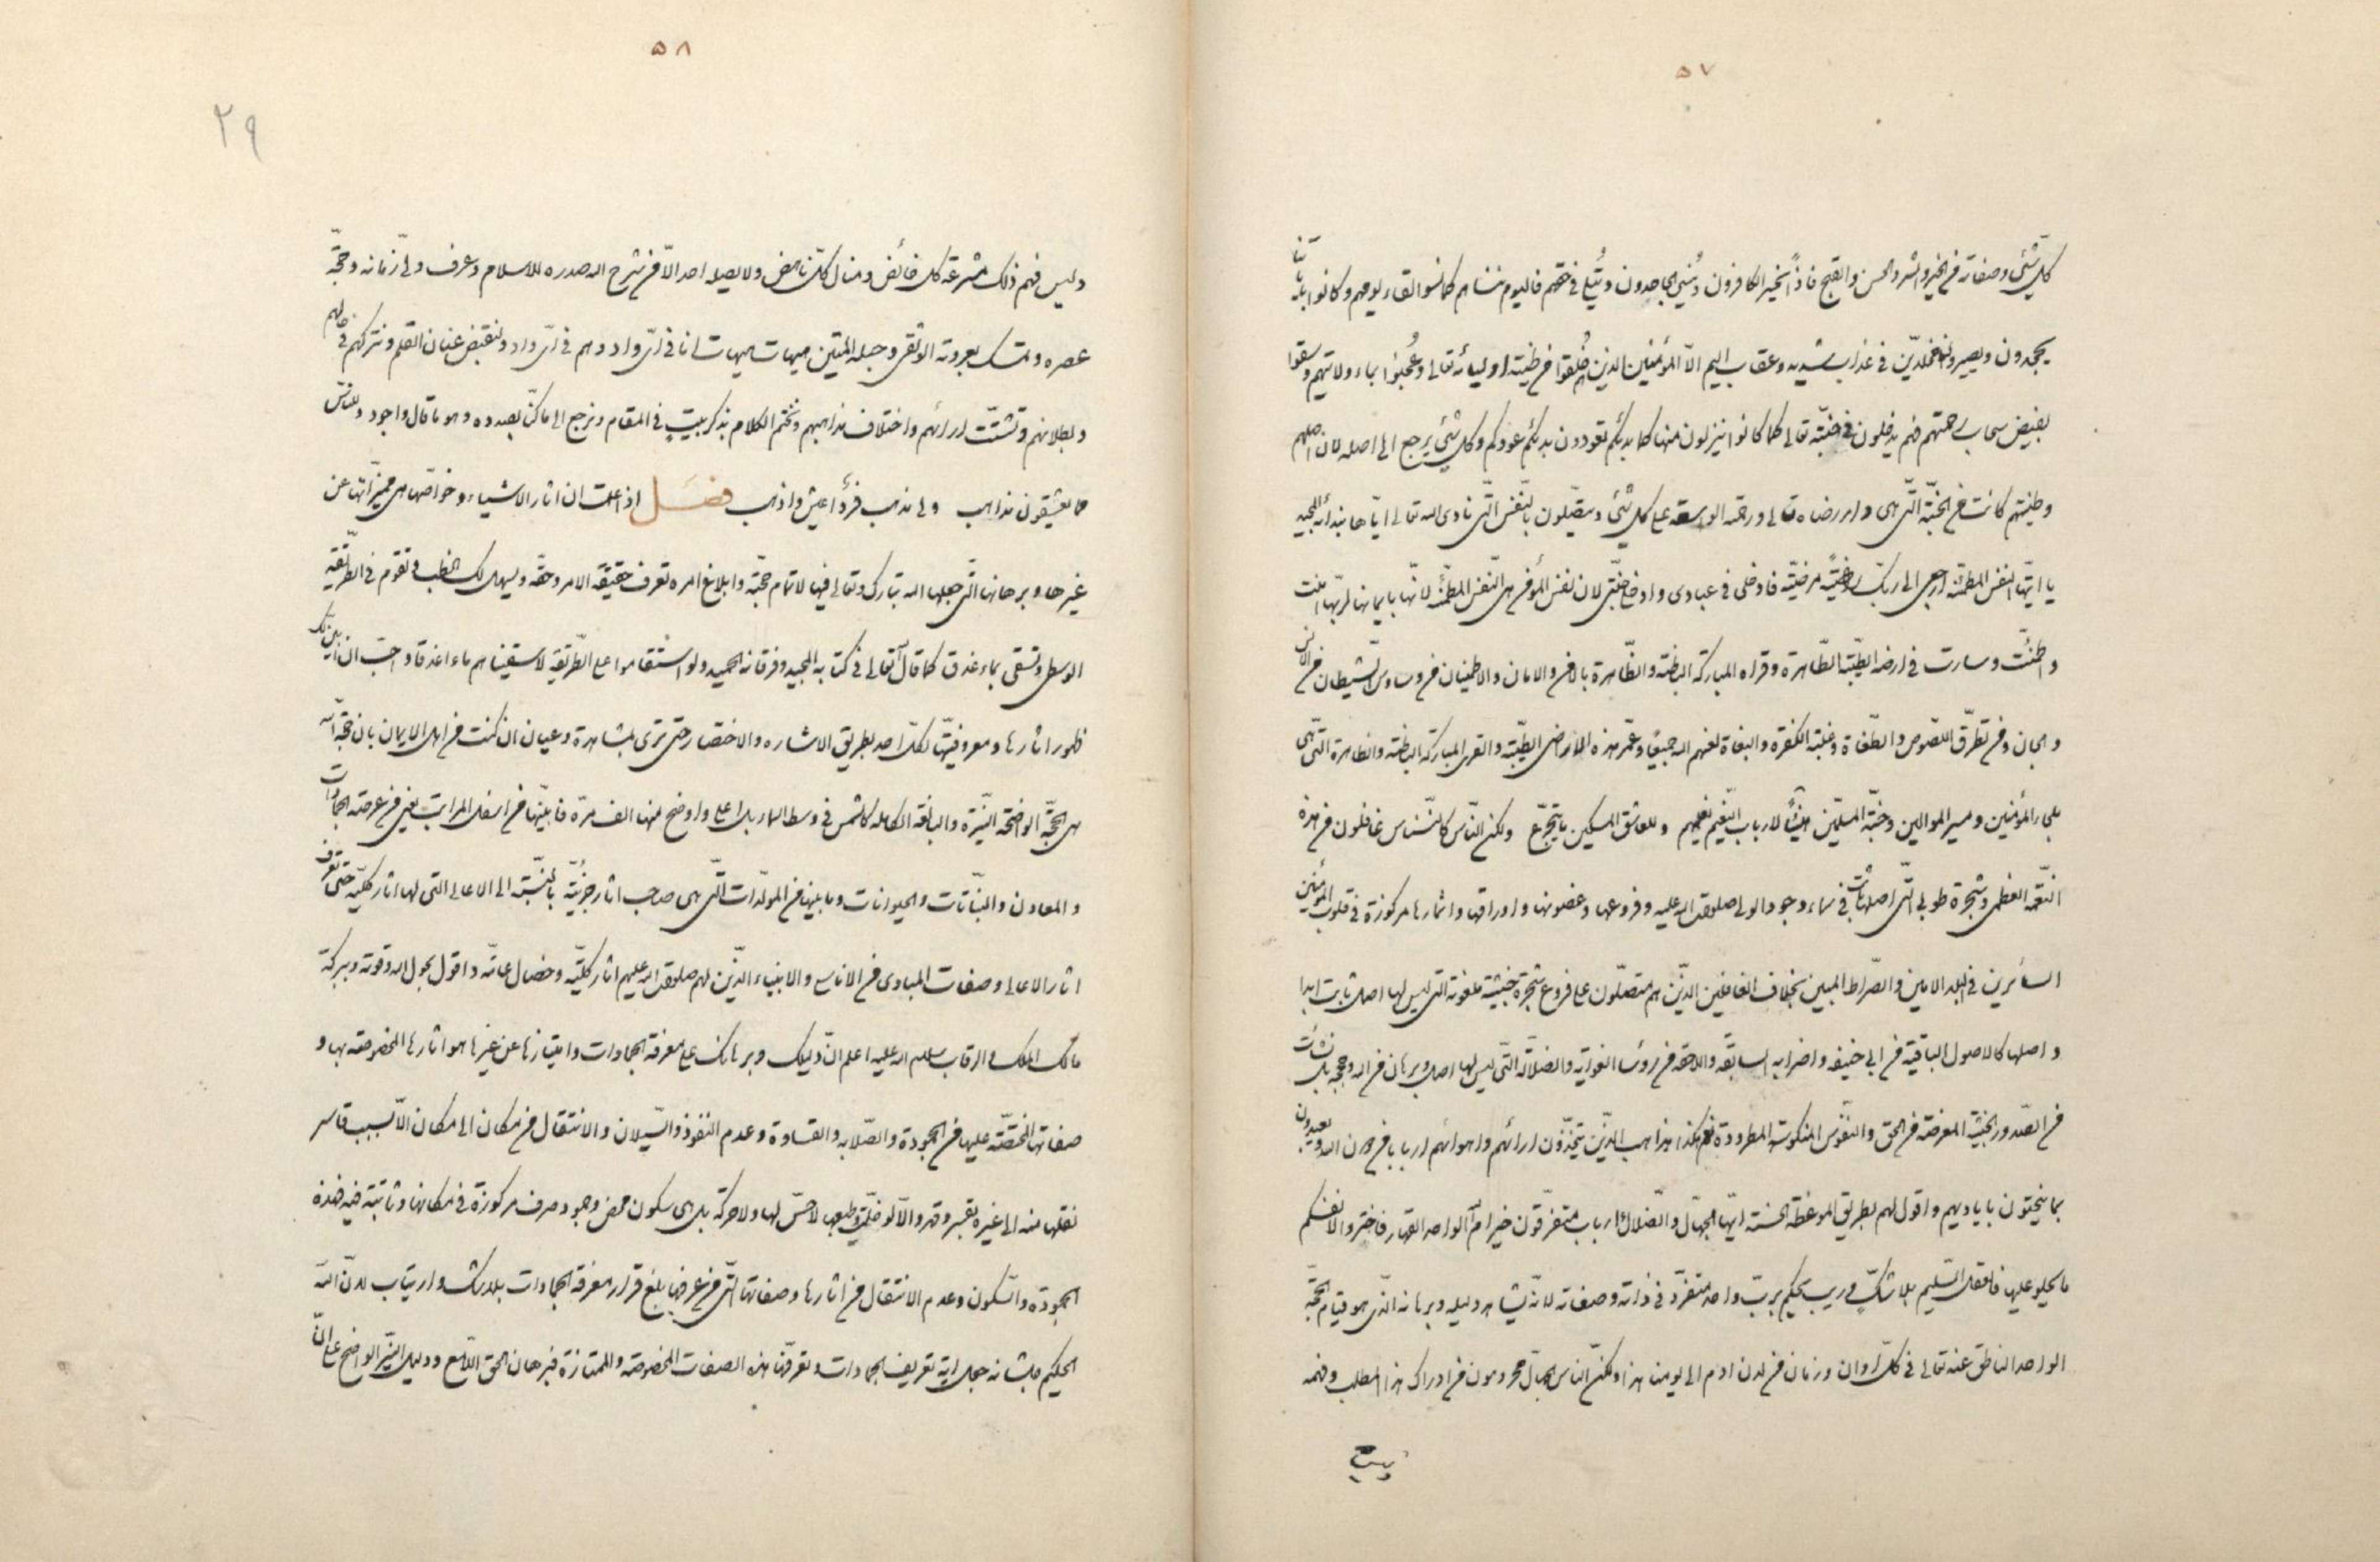 ٥٧
كل شئ و صفاته من الخير و الشر و الحسن و القبح فاذاً يخير الكافرون و الجاحدون و يتلى في حقهم فاليوم ننساهم كما نسوا لقاء يومهم و كانوا باياتنا
يجحدون و يصيرون مخلدين في عذاب شديد و عقاب اليم الا المؤمنين الذين هم خلقوا من طينة اوليائه تعالى و عجنوا بماء ولايتهم و سقوا
بفيض سحاب رحمتهم فهم يدخلون في جنته تعالى كما كانوا ينزلون منها كما بدئكم تعودون بدئكم عودكم و كل شئ يرجع الى اصله لان اصلهم
و طينتهم كانت من الجنة التي هي دار رضاه تعالى و رحمته الواسعة على كل شئ و يتصلون بالنفس التي نادى الله تعالى اياها بندائه المجيد
يا ايتها النفس المطمئنة ارجعي الى ربك راضية مرضية فادخلي في عبادي و ادخلي جنتي لان نفس المؤمن هي النفس المطمئنة لانها بايمانها لربها امنت
و اطمئنت و سارت في ارضه الطيبة الطاهرة و قراه المباركة الباطنة و الظاهرة بالامن و الامان و الاطمينان من وساوس الشيطان من الانس
و الجان و من تطرق اللصوص و الطغاة و غلبة الكفرة و البغاة لعنهم الله جميعاً و عمر هذه الاراضي الطيبة و القرى المباركة الباطنة و الظاهرة التي هي
ملجاء المؤمنين و مسير الموالين و جنة المسلمين هنيئاً لارباب النعيم نعيمهم و للعاشق المسكين ما يتجرع و لكن الناس كالنسناس غافلون من هذه
النعمة العظمى و شجرة طوبى التي اصلها ثابت في سماء وجود الولى صلوات الله عليه و فروعها و غصونها و اوراقها و اثمارها مركوزة في قلوب المؤمنين
السائرين في البلد الامين و الصراط المبين بخلاف الغافلين الذين هم متصلون على فروع شجرة خبيثة ملعونة التي ليس لها اصل ثابت ابدا
و اصلها كالاصول الباقية من ابي حنيفه و اضرابه السابقه و اللاحقه من رؤسا الغواية و الضلالة التي ليس لها اصل و برهان من الله و حججه بل نشئت
من الصدور الخبيثة المعرضة من الحق و النفوس المنكوسة المطرودة نعم هكذا مذاهب الذين يتخذون ارائهم و اهوائهم اربابا من دون الله و يعبدون
بما ينحتون باياديهم و اقول لهم بطريق الموعظة الحسنة ايها الجهال و الضلال ءارباب متفرقون خير ام الواحد القهار فاختروا لانفسكم
ما يحلو عليها فالعقل السليم بلا شك و ريب يحكم برب واحد متفرد في ذاته و صفاته لانه يشاهد دليله و برهانه الذي هو قيام الحجة
الواحد الناطق عنه تعالى في كل اوان و زمان من لدن ادم الى يومنا هذا و لكن الناس الجهال محرومون من ادراك هذا المطلب و فهمه
و ليس
٥٨
٢٩
و ليس فهم ذلك مشرعة كل خائض و منال كل ناهض و لا يصله احد الا من شرح الله صدره للاسلام و عرف ولى زمانه و حجة
عصره و تمسك بعروته الوثقى و حبله المتين هيهات هيهات انا في واد و هم في واد و لنقبض عنان القلم و نتركهم في جهلهم
و بطلانهم و تشتت ارائهم و اختلاف مذاهبهم و نختم الكلام بذكر بيت في المقام و نرجع الى ما كنا بصدده و هو ما قال و اجود و للناس
فيما يعشقون مذاهب و لى مذهب فرد اعيش و اذهب فصل اذا علمت ان اثار الاشياء و خواصها هي مميزاتها عن
غيرها و برهانها التي جعلها الله تبارك و تعالى فيها لاتمام حجته و ابلاغ امره تعرف حقيقة الامر و حقه و يسهل لك الخطب و تقوم في الطريقة
الوسطى و تسقى بماء غدق كما قال تعالى في كتابه المجيد و فرقانه الحميد و لو استقاموا على الطريقة لاسقيناهم ماء اغدقا و احب ان ابين لك
ظهور اثارها و معروفيتها لكل احد بطريق الاشاره و الاختصار حتى ترى بمشاهدة و عيان ان كنت من اهل الايمان بان حجة الله
هي الحجة الواضحة النيرة و البالغة الكاملة كالشمس في وسط السماء بل اعلى و اوضح منها الف مرة فابينها من اسفل المراتب يعني من عرصة الجمادات
و المعادن و النباتات و الحيوانات و ما بينها من المولدات التي هي صاحب اثار جزئية بالنسبة الى الاعالى التي لها اثار كلية حتى تعرف
اثار الاعالى و صفات المبادي من الاناسى و الانبياء الذين لهم صلوات الله عليهم اثار كلية و خصال عامة و اقول بحول الله و قوته و ببركة
مالك الملك و الرقاب سلام الله عليه اعلم ان دليلك و برهانك على معرفة الجمادات و امتيازها عن غيرها هو اثارها المخصوصة بها و
صفاتها المختصة عليها من الجمودة و الصلابه و القساوة و عدم النفوذ و السيلان و الانتقال من مكان الى مكان الا بسبب قاسر
نقلها منه الى غيره بقسر و قهر و الا لو خليت و طبعها لا حس لها و لا حركة بل هي سكون محض و جمود صرف مركوزة في مكانها و ثابتة فيه فهذه
الجمودة و السكون و عدم الانتقال من اثارها و صفاتها التي من عرفها بلغ قرار معرفة الجمادات بلا شك و ارتياب لان الله
الحكيم جل شانه جعل اية تعريف الجمادات و تعرفها بهذه الصفات المخصوصة و الممتازة فبرهان الحق اللامع و دليل النير الواضح على ان